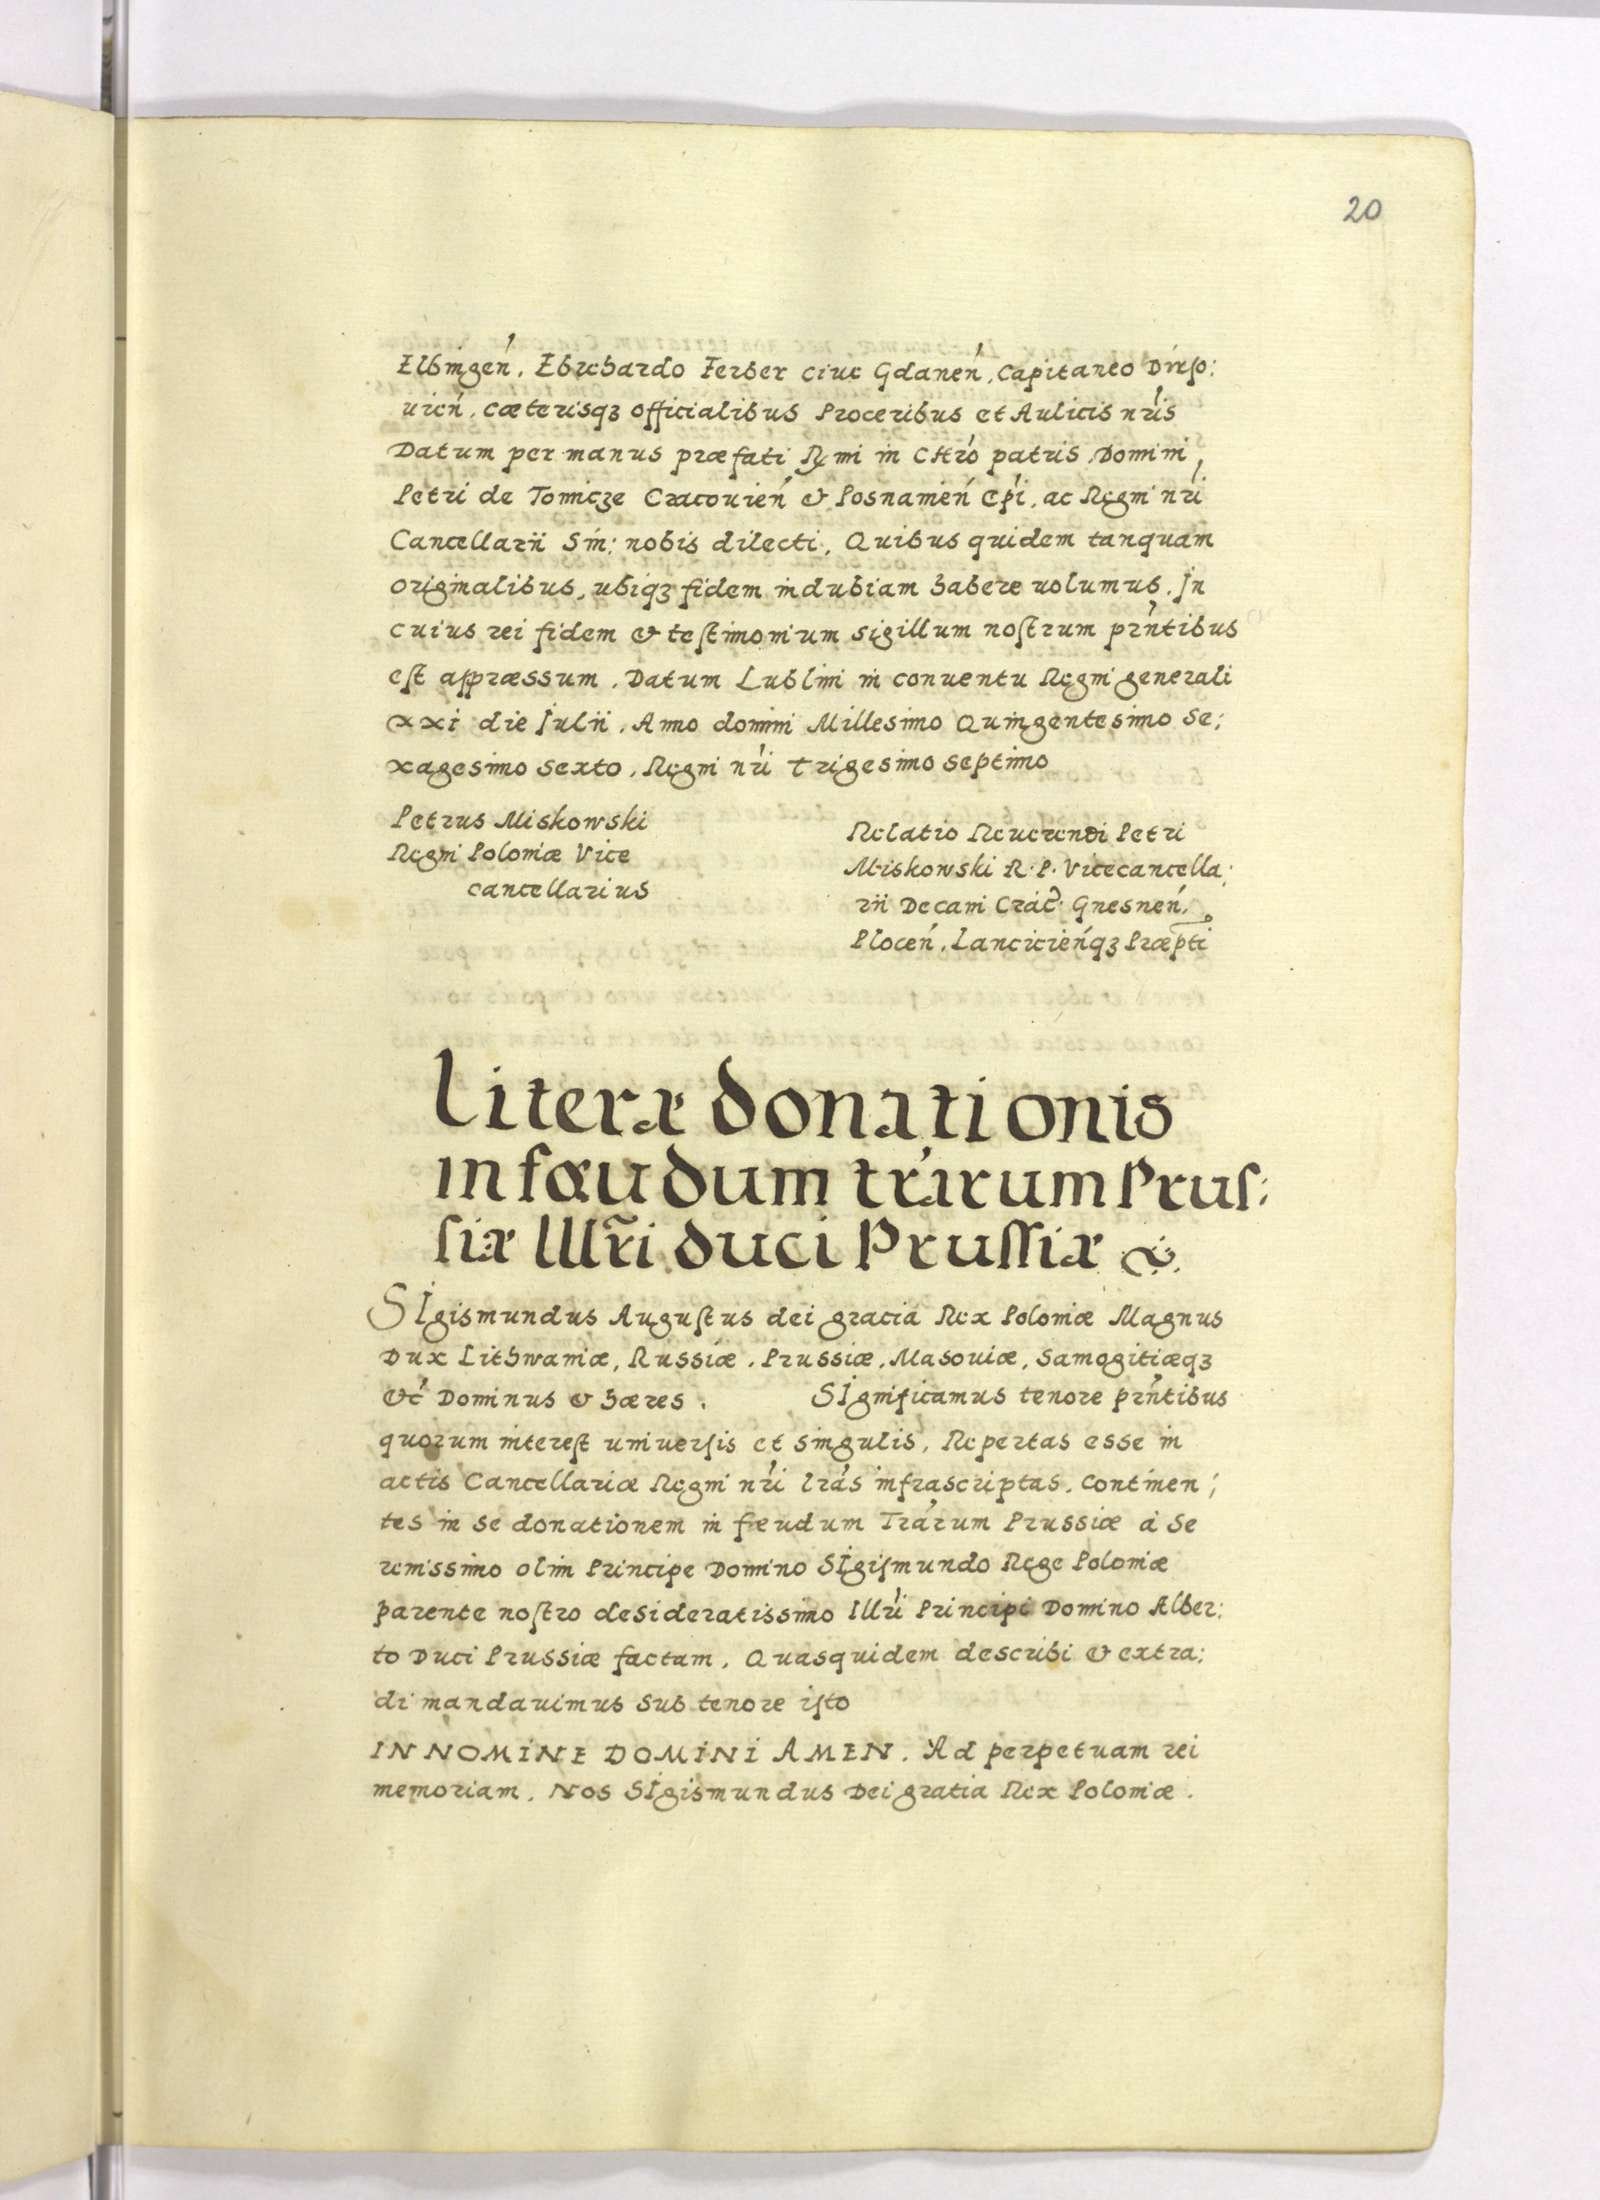 20
Elbingeń, Eberhardo Ferber ciue Gdaneń, Capitaneo Dirso:
uień, cæterisqꝫ officialibus Proceribus et Aulicis nr̃is
Datum per manus præfati Rẏmi in Chr̃o patris Domini
Petri de Tomicze Cracouień & Posnamień Epĩ, ac Regni nr̃i
Cancellarii Sin: nobis dilecti, Quibus quidem tanquam
originalibus, ubiqꝫ fidem indubiam habere uolumus. In
cuius rei fidem & teſtimonium sigillum noſtrum prñtibus
eſt appræssum. Datum Lublini in conuentu Regni generali
xxi die Iulii. Anno domini Millesimo Quingentesimo Se:
xagesimo sexto, Regni nr̃i trigesimo septimo
Petrus Miskowski
Regni Poloniæ Vice
cancellarius
Relatio Reuerendi Petri
Miskowski R. P. Vicecancella:
rii Decani Crac̃. Gnesneń,
Ploceń, Lancicieńqꝫ Præpti
Literæ donationis
in fœudum tr̃arum Pruſ:
ſiæ Illr̃i duci Pruſſiæ &.
SIgismundus Auguſtus dei gracia Rex Poloniæ Magnus
Dux Lithwaniæ, Russiæ, Prussiæ, Masouiæ, Samogitiæqꝫ
&c̃ Dominus & hæres. SIgnificamus tenore prñtibus
quorum intereſt uniuerſis et singulis, Repertas esse in
actis Cancellariæ Regni nr̃i lrãs infrascriptas, continen:
tes in se donationem in fœudum Trãrum Prussiæ à Se
renissimo olim Principe Domino SIgiſmundo Rege Poloniæ
parente noſtro desideratissimo Illr̃i Principi Domino Alber:
to Duci Prussiæ factam, Quasquidem describi & extra:
di mandauimus sub tenore iſto
IN NOMINE DOMINI AMEN. Ad perpetuam rei
memoriam. Nos SIgismundus Dei gratia Rex Poloniæ.